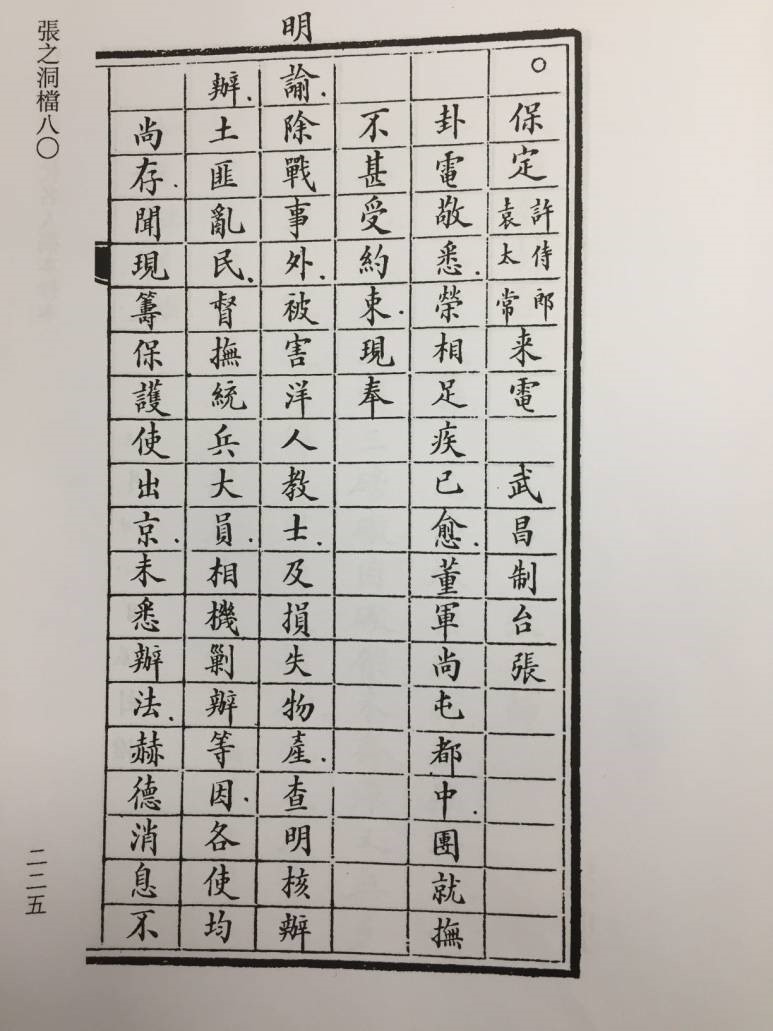 張之洞檔八〇
○保定許侍郎袁太常來電　武昌制台張
卦電敬悉.榮相足疾已愈.董軍尚屯都中.團就撫
不甚受約束.現奉
明諭.除戰事外.被害洋人教士.及損失物產.查明核辦
辦.土匪亂民.督撫統兵大員.相機剿辦等因.各使均
尚存.聞現籌保護使出京.未悉辦法.赫德消息不
二二五